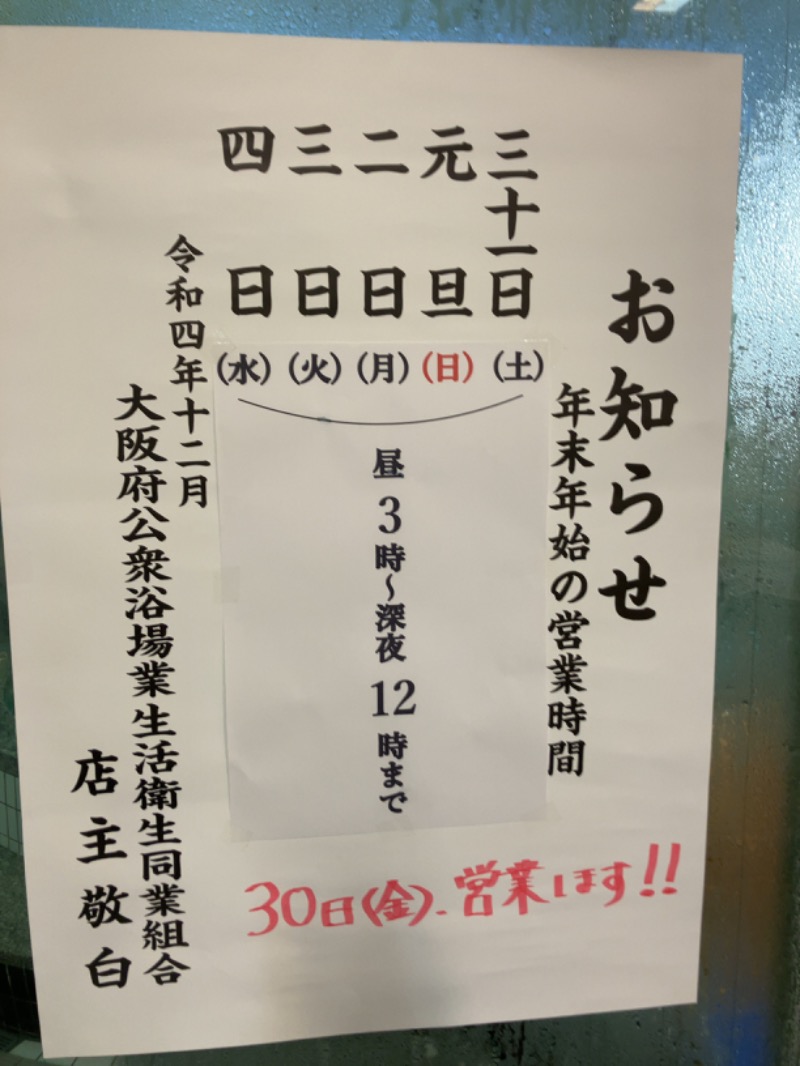 お知らせ
年末年始の営業時間
三十一日(土)
元旦(日)
二日(月)
三日(火)
四日(水)
昼3時〜深夜12時まで
令和四年十二月
大阪府公衆浴場業生活衛生同業組合
店主敬白
30日(金)、営業します!!